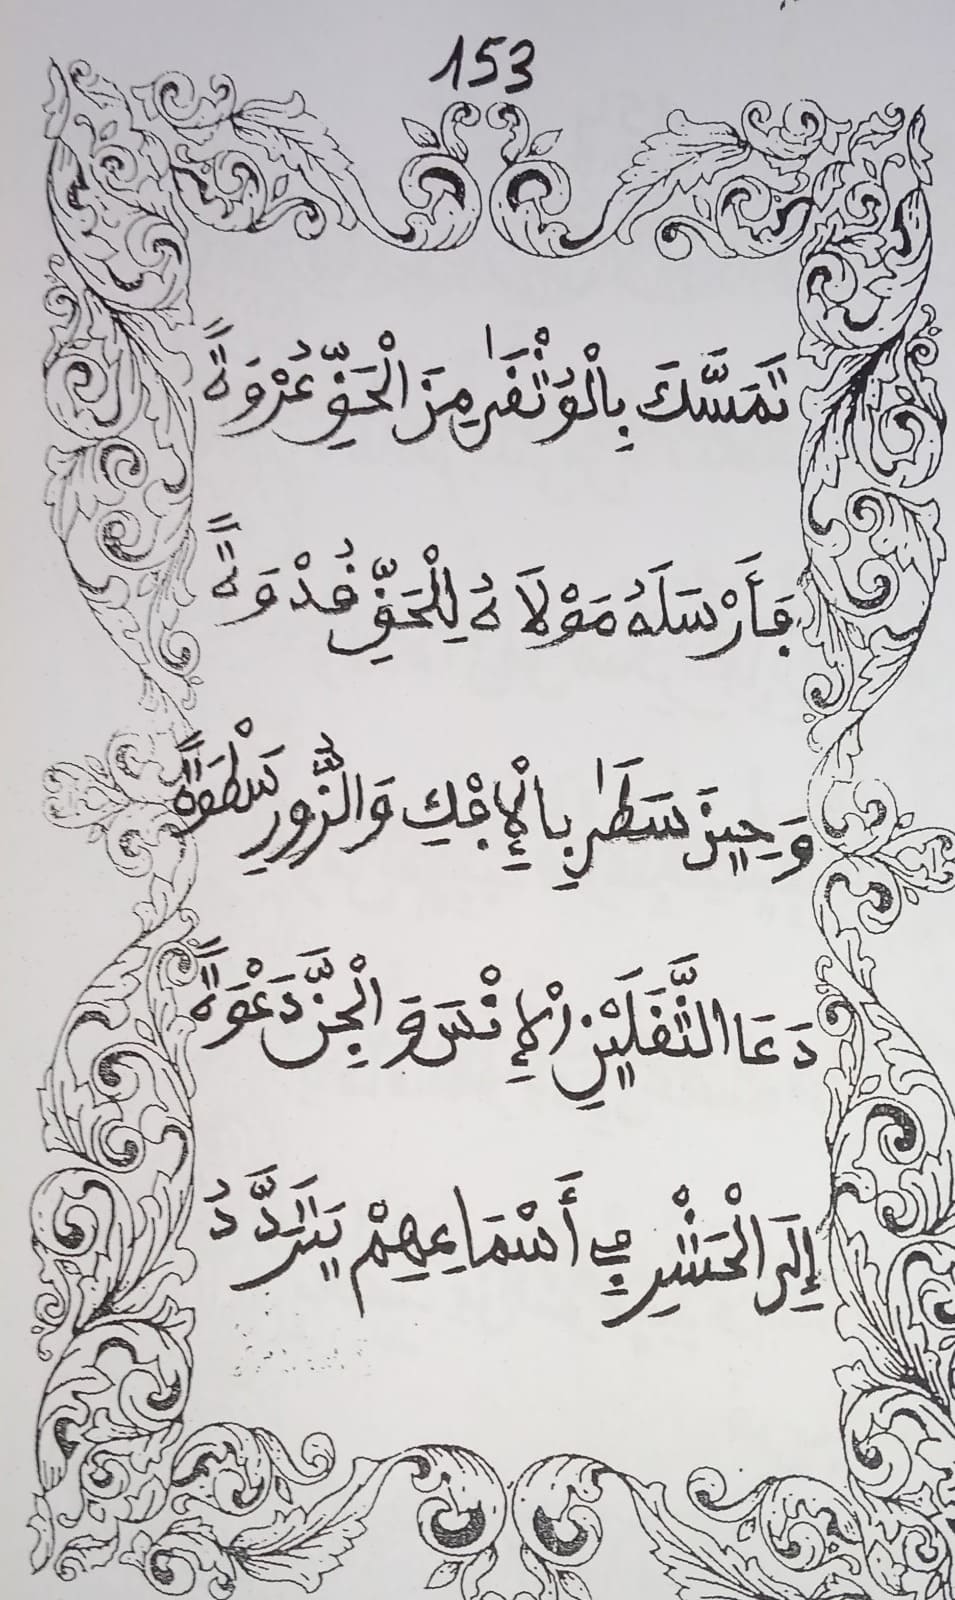 153
تَمَسَّكَ بِالْوُثْقَىٰ مِنَ الْحَقِّ عُرْوَةً
فَأَرْسَلَهُ مَوْلَاهُ لِلْحَقِّ قُدْوَةً
وَحِينَ سَطَىٰ بِالْإِفْكِ وَالزُّورِ سَطْوَةً
دَعَا الثَّقَلَيْنِ الْإِنْسَ وَالْجِنَّ دَعْوَةً
إِلَى الْحَشْرِ فِي أَسْمَاعِهِمْ يَتَرَدَّدُ